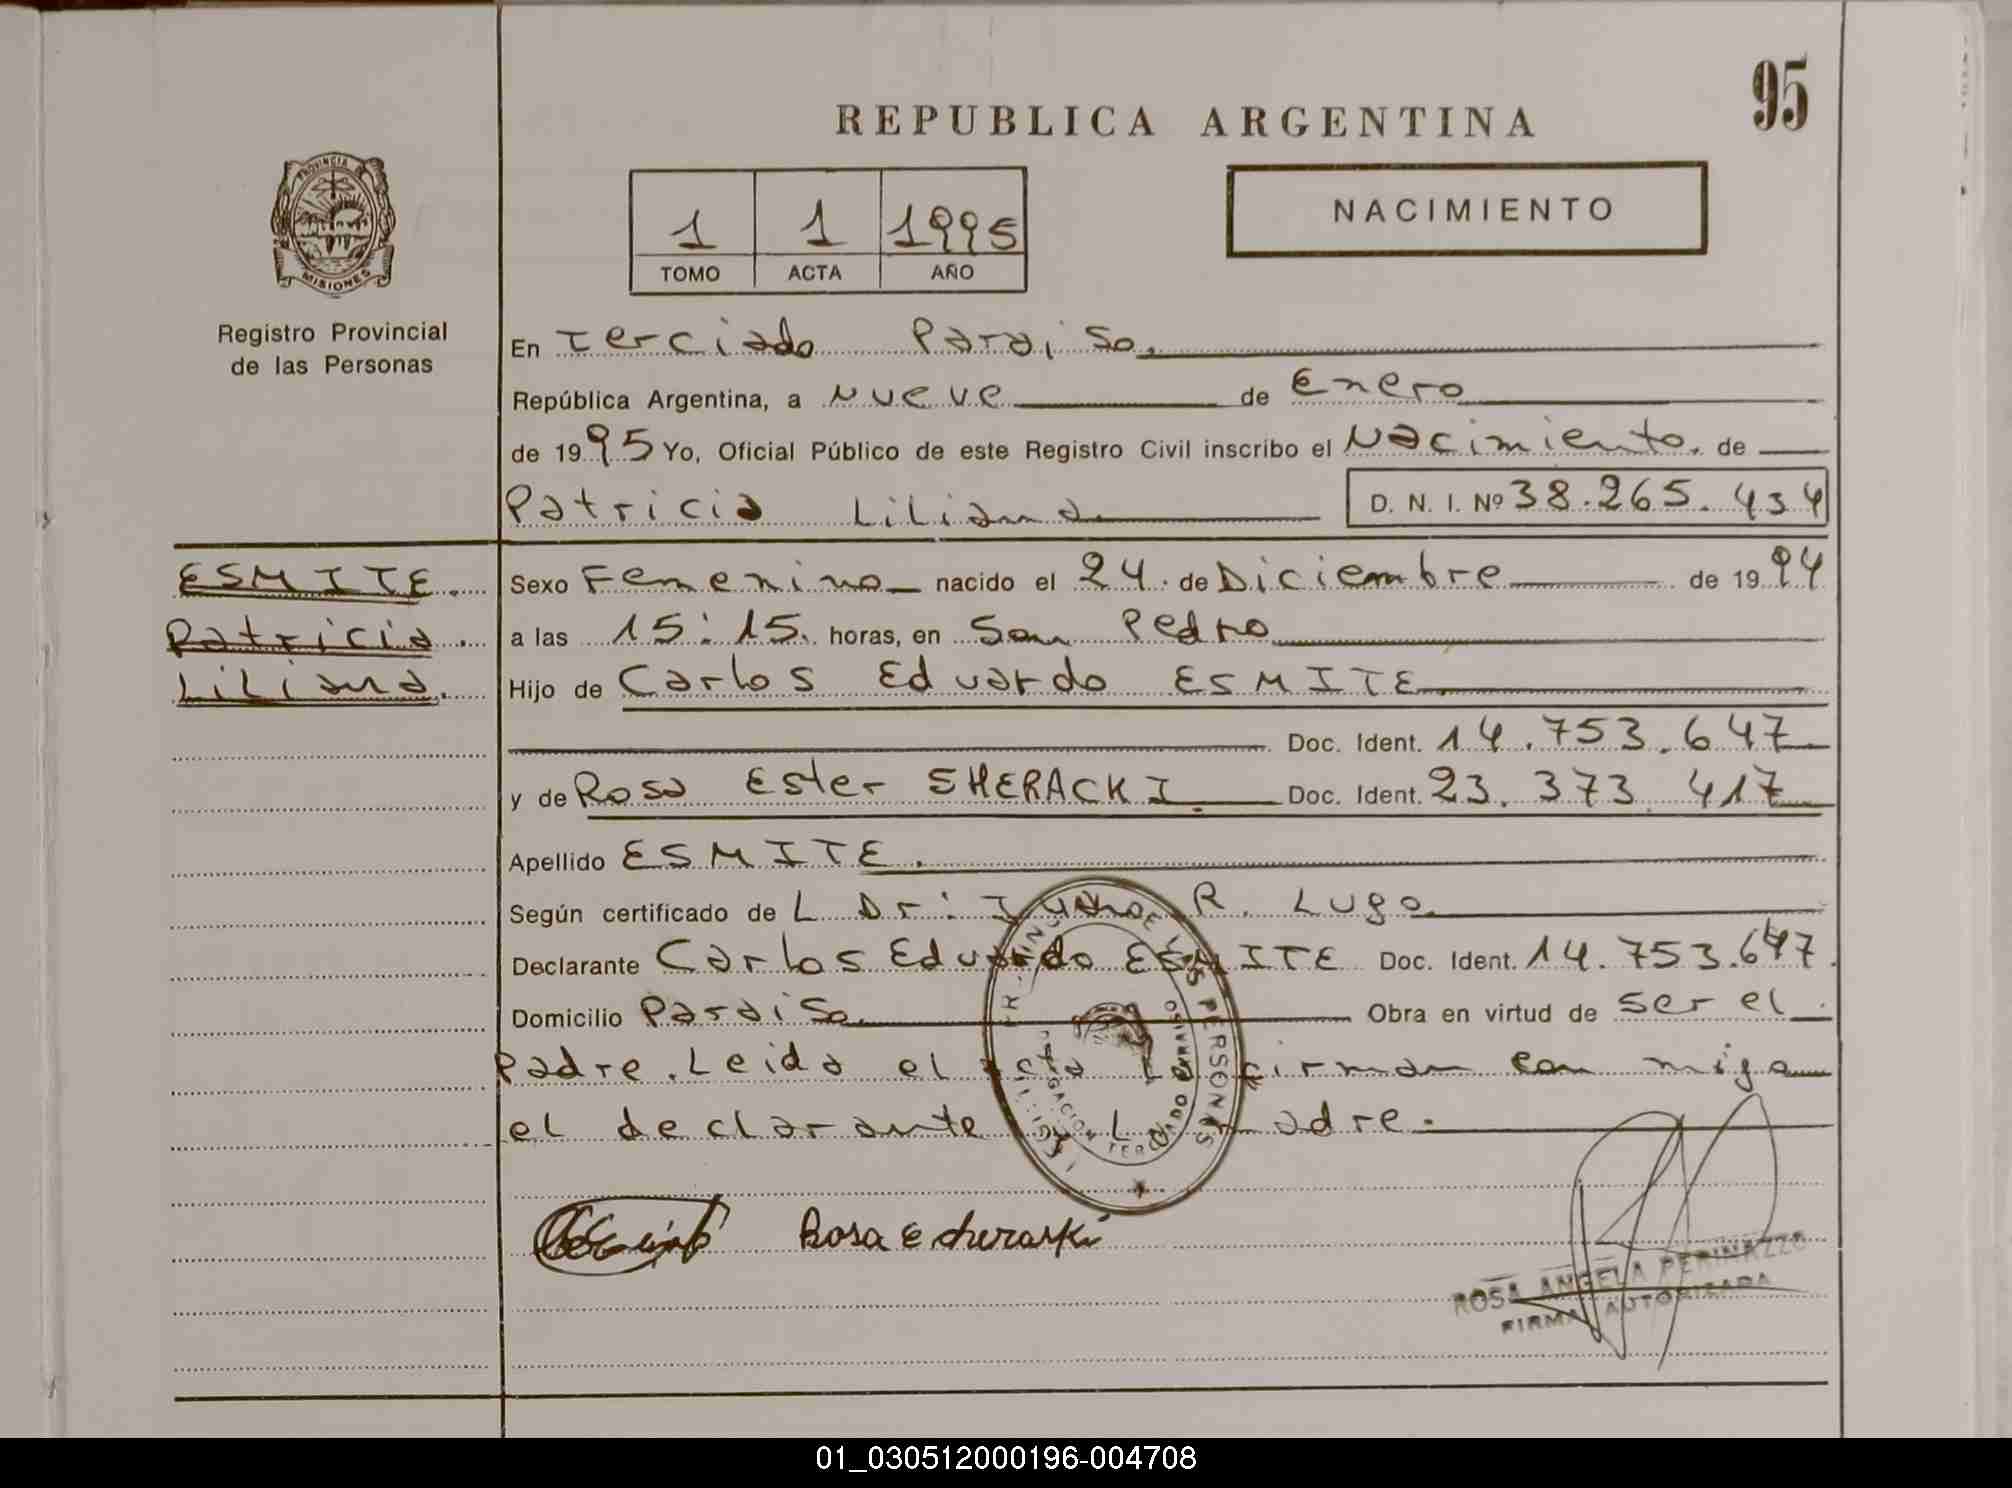 95
REPUBLICA ARGENTINA
PROVINCIA
MISIONES
Registro Provincial
de las Personas
1 1 1995
TOMO ACTA AÑO
NACIMIENTO
En Terciado Paraiso.
República Argentina, a Nueve de Enero
de 1995 Yo, Oficial Público de este Registro Civil inscribo el Nacimiento. de
Patricia Liliana D. N. I. Nº 38.265.434
ESMITE.
Patricia.
Liliana.
Sexo Femenino nacido el 24. de Diciembre de 1994
a las 15:15. horas, en San Pedro
Hijo de Carlos Eduardo ESMITE
Doc. Ident. 14.753.647
y de Rosa Ester SHERACKI. Doc. Ident. 23.373.417
Apellido ESMITE.
Según certificado de L Dr: R. Lugo.
Declarante Carlos Eduardo ESMITE Doc. Ident. 14.753.647.
Domicilio Paraiso. Obra en virtud de ser el
Padre. Leida el acta La firman con migo
el declarante y La Madre.
DE LAS PERSONAS
DELEGACION TERCIADO PARAISO
Rosa E
ROSA ANGELA PERINAZZO
FIRMA AUTORIZADA
01_030512000196-004708